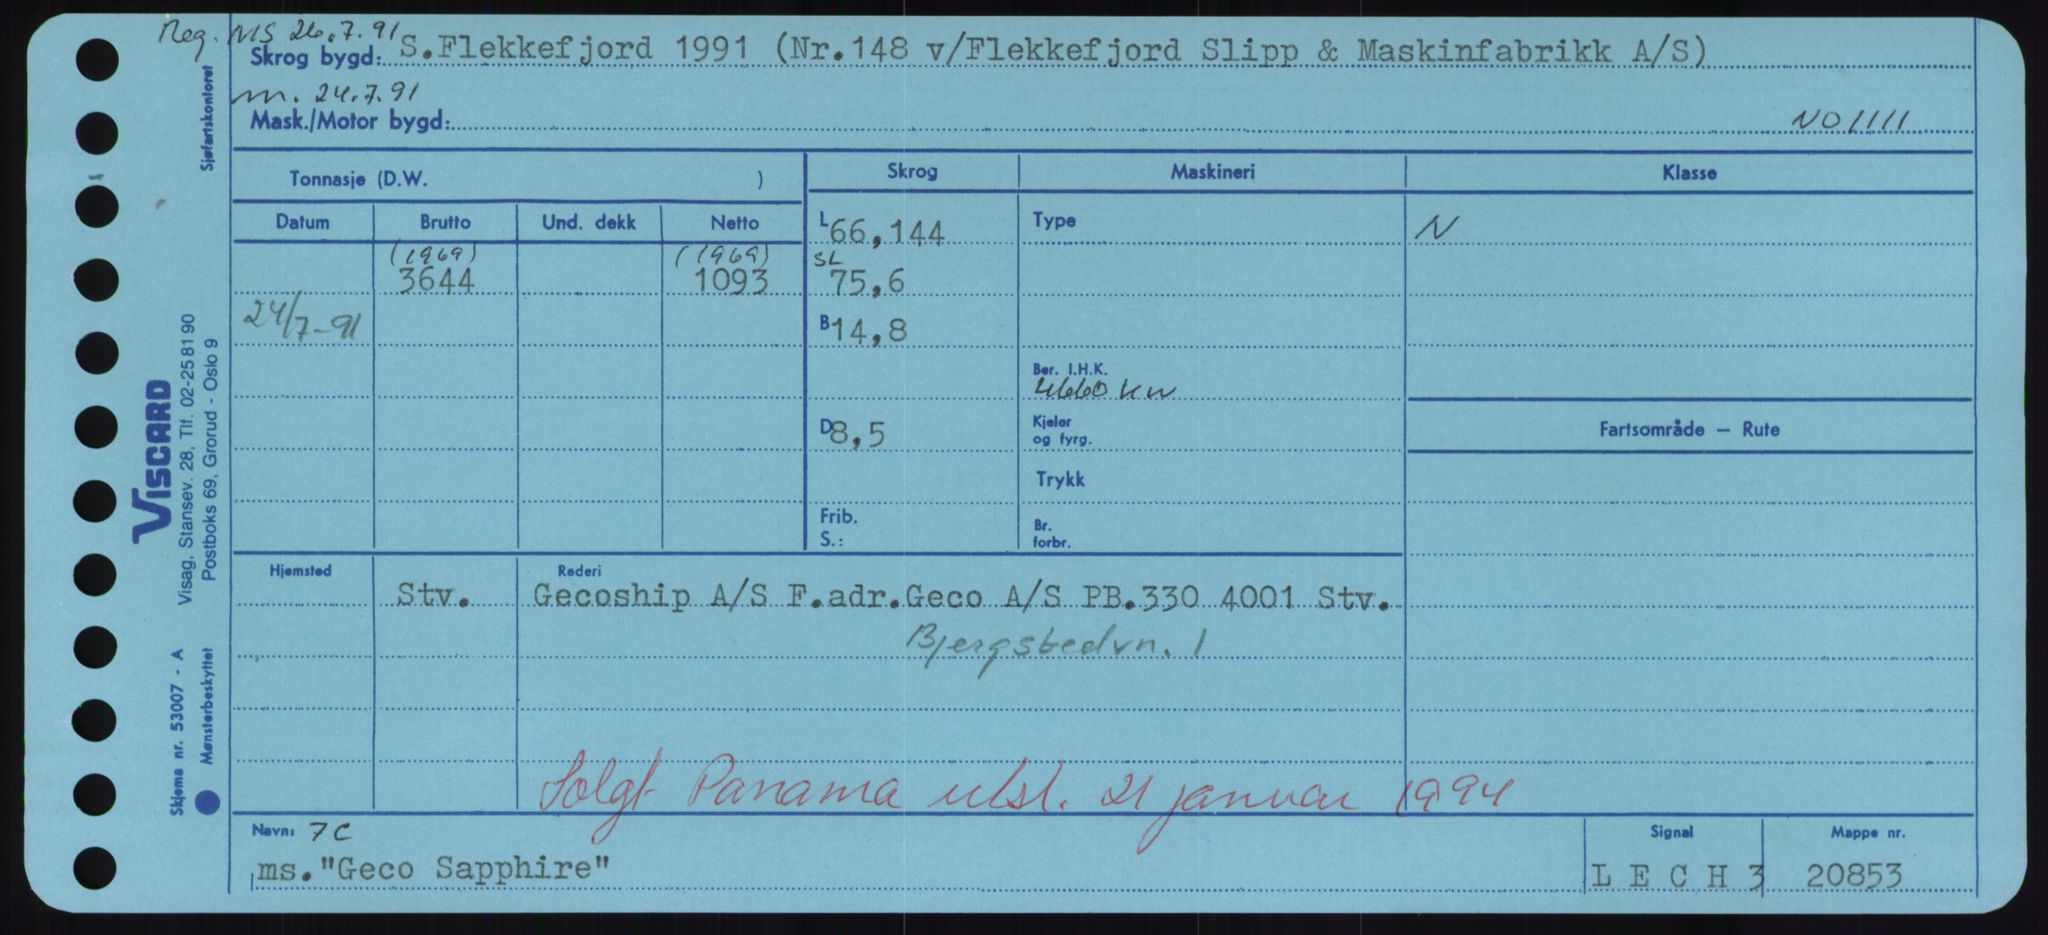 Reg. NIS 26.7.91
Skrog bygd: S.Flekkefjord 1991 (Nr.148 v/Flekkefjord Slipp & Maskinfabrikk A/S)
m. 24.7.91
Mask./Motor bygd: NO 1111
Tonnasje (D.W. )
Skrog Maskineri Klasse
Datum Brutto Und. dekk Netto
L 66,144 Type N
(1969) (1969)
3644 1093
SL
75,6
24/7-91
B 14,8
Ber. I.H.K.
4660 KW
D 8,5
Kjeler
og fyrg.
Fartsområde — Rute
Trykk
Frib.
S.:
Br.
forbr.
Hjemsted Rederi
Stv. Gecoship A/S F.adr.Geco A/S PB.330 4001 Stv.
Bjergstedvn. 1
Solgt Panama utsl. 21 januar 1994
Navn: 7C Signal Mappe nr.
ms."Geco Sapphire" L E C H 3 20853
Sjøfartskontoret
VISCARD
Visag, Stansev. 28, Tlf. 02-25 81 90
Postboks 69, Grorud - Oslo 9
Skjema nr. 53007 - A
Mønsterbeskyttet